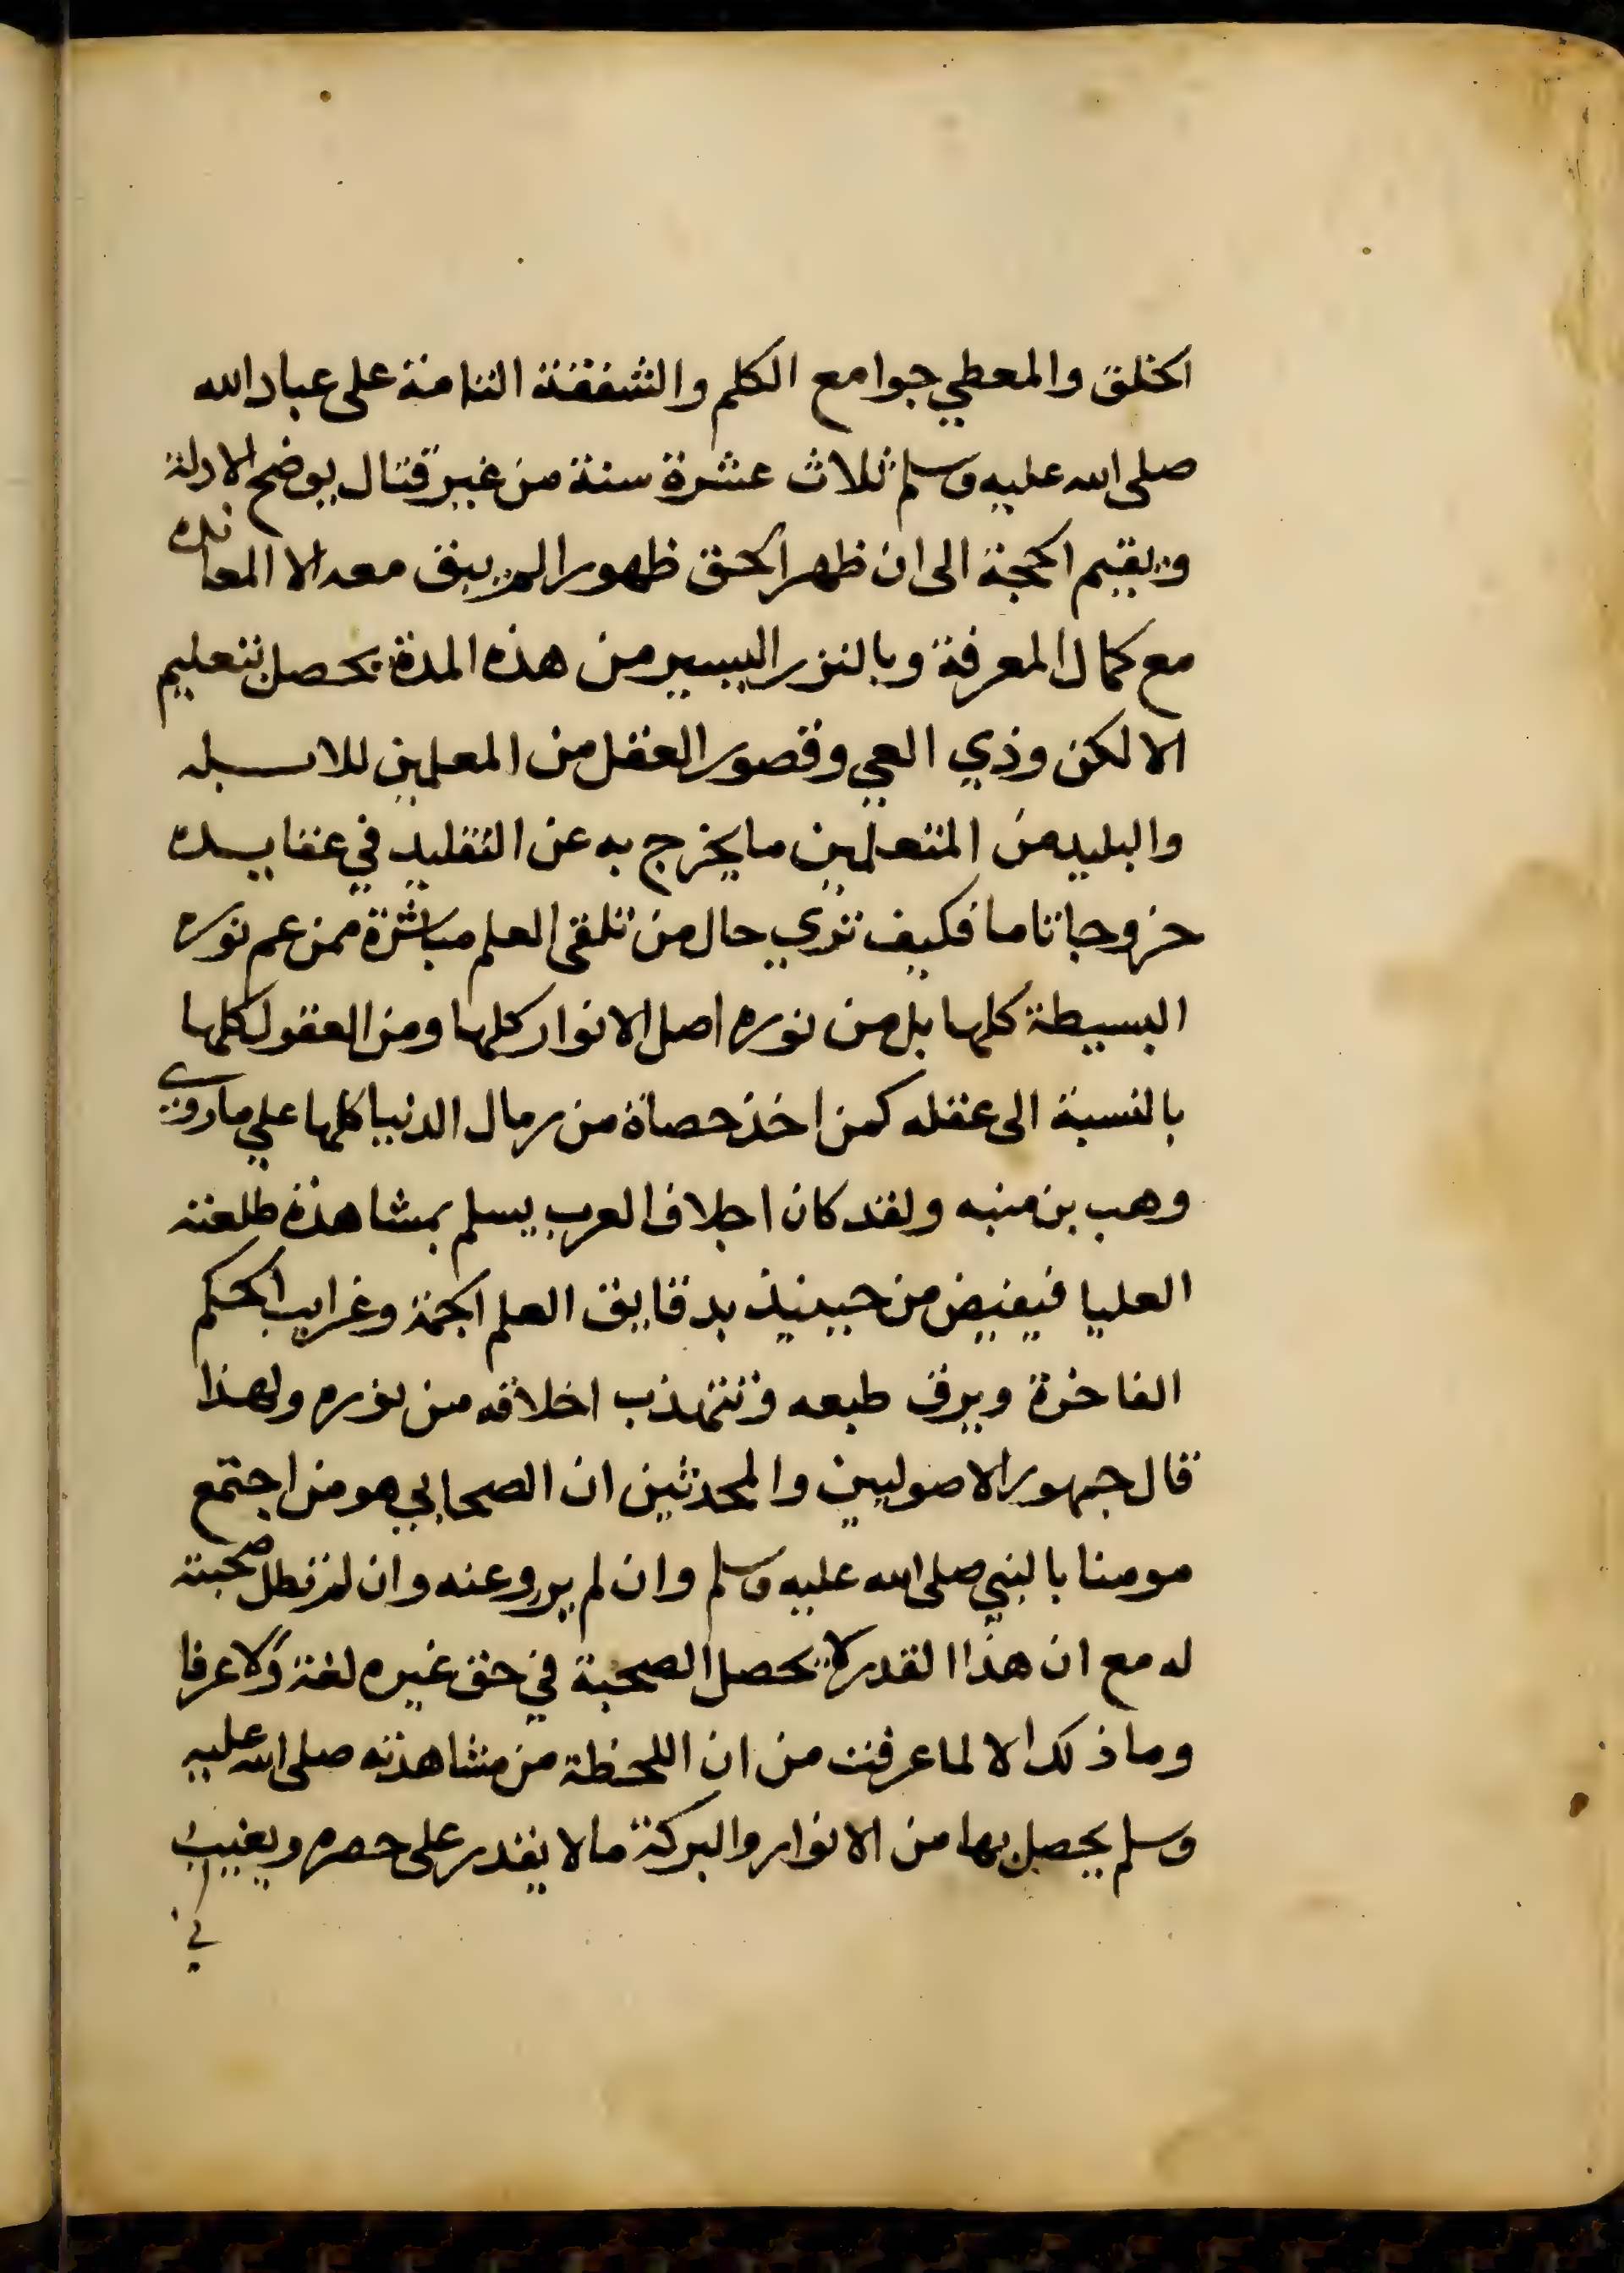 الخلق والمعطي جوامع الكلم والشفقة التامة على عباد الله
صلى الله عليه وسلم ثلاث عشرة سنة من غير قتال يوضح الادلة
ويقيم الحجة الى ان ظهر الحق ظهورا لم يبق معه الا المعاندة
مع كمال المعرفة وبالنزر اليسير من هذه المدة يحصل بتعليم
الالكن وذي العي وقصور العقل من المعلمين للابله
والبليد من المتعلمين ما يخرج به عن التقليد في عقايده
خروجا تاما فكيف تري حال من تلقى العلم مباشرة ممن عم نوره
البسيطة كلها بل من نوره اصل الانوار كلها ومن العقول كلها
بالنسبة الى عقله كمن اخذ حصاة من رمال الدنيا كلها علي ما روي
وهب بن منبه ولقد كان اجلاف العرب يسلم بمشاهدة طلعته
العليا فيفيض من حينيذ بدقايق العلم الجمة وغرايب الحكم
الفاخرة ويرق طبعه وتتهذب اخلاقه من نوره ولهذا
قال جمهور الاصوليين والمحدثين ان الصحابي هو من اجتمع
مومنا بالنبي صلى الله عليه وسلم وان لم يرو عنه وان لم تطل صحبته
له مع ان هذا القدر لا يحصل الصحبة في حق غيره لغة ولا عرفا
وما ذلك الا لما عرفت من ان اللحظة من مشاهدته صلى الله عليه
وسلم يحصل بها من الانوار والبركة ما لا يقدر على حصره ويغيب
في